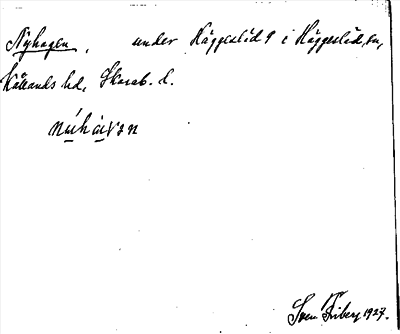 Nyhagen, under Häggeslöd 9 i Häggeslöd, sn,
Kållands hd, Skarab. l.
Sven Friberg 1927.